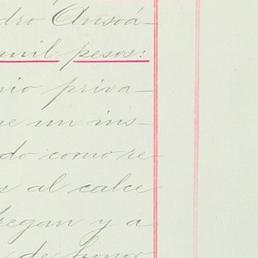 dro Ansoá-
mil pesos:
nio priva-
ue un ins-
do como re
s al calce
regan y a-
de honor